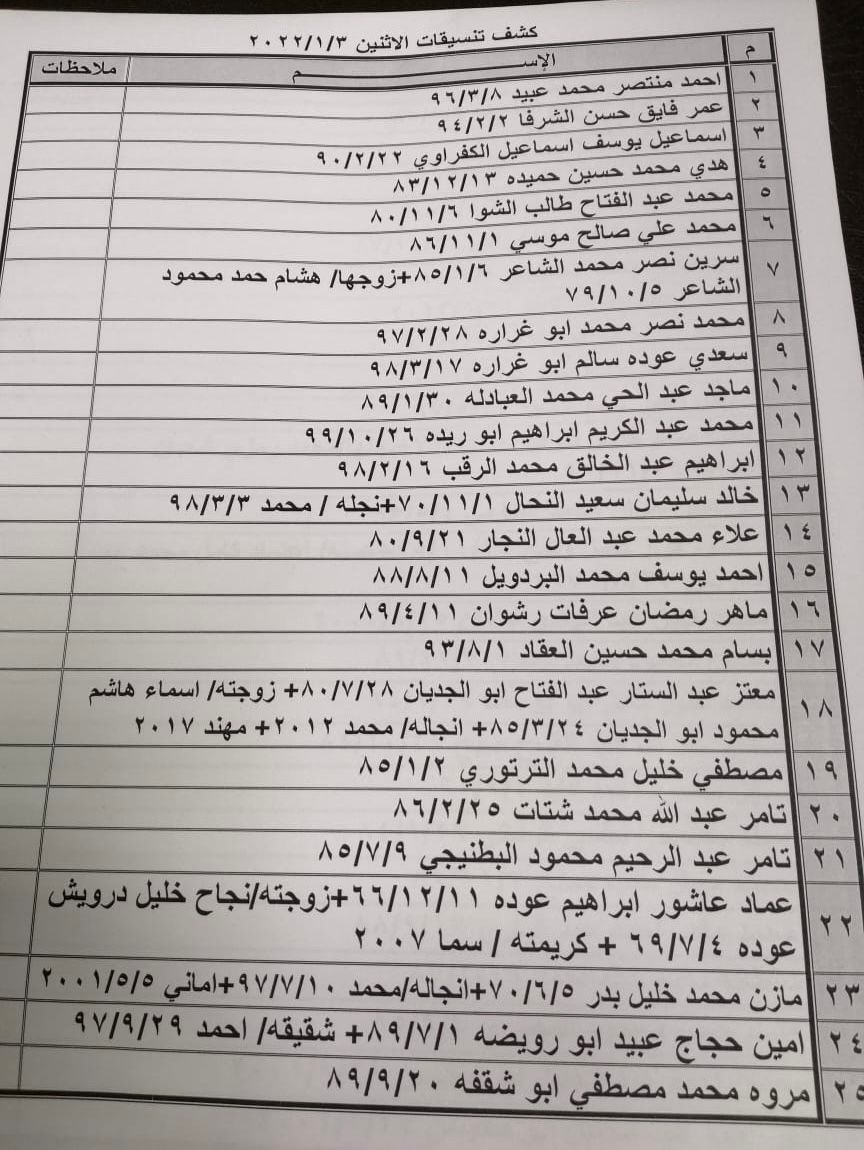 كشف تنسيقات الاثنين ٢٠٢٢/١/٣
م الإســـــــــــــم ملاحظات
١ احمد منتصر محمد عبيد ٩٦/٣/٨
٢ عمر فايق حسن الشرفا ٩٤/٢/٢
٣ اسماعيل يوسف اسماعيل الكفراوي ٩٠/٢/٢٢
٤ هدي محمد حسين حميده ٨٣/١٢/١٣
٥ محمد عبد الفتاح طالب الشوا ٨٠/١١/٦
٦ محمد علي صالح موسي ٨٦/١١/١
٧ سرين نصر محمد الشاعر ٨٥/١/٦+زوجها/ هشام حمد محمود
الشاعر ٧٩/١٠/٥
٨ محمد نصر محمد ابو غراره ٩٧/٢/٢٨
٩ سعدي عوده سالم ابو غراره ٩٨/٣/١٧
١٠ ماجد عبد الحي محمد العبادله ٨٩/١/٣٠
١١ محمد عبد الكريم ابراهيم ابو ريده ٩٩/١٠/٢٦
١٢ ابراهيم عبد الخالق محمد الرقب ٩٨/٢/١٦
١٣ خالد سليمان سعيد النحال ٧٠/١١/١+نجله / محمد ٩٨/٣/٣
١٤ علاء محمد عبد العال النجار ٨٠/٩/٢١
١٥ احمد يوسف محمد البردويل ٨٨/٨/١١
١٦ ماهر رمضان عرفات رشوان ٨٩/٤/١١
١٧ بسام محمد حسين العقاد ٩٣/٨/١
١٨ معتز عبد الستار عبد الفتاح ابو الجديان ٨٠/٧/٢٨+ زوجته/ اسماء هاشم
محمود ابو الجديان ٨٥/٣/٢٤+ انجاله/ محمد ٢٠١٢+ مهند ٢٠١٧
١٩ مصطفي خليل محمد الترتوري ٨٥/١/٢
٢٠ تامر عبد الله محمد شتات ٨٦/٢/٢٥
٢١ تامر عبد الرحيم محمود البطنيجي ٨٥/٧/٩
٢٢ عماد عاشور ابراهيم عوده ٦٦/١٢/١١+زوجته/نجاح خليل درويش
عوده ٦٩/٧/٤ + كريمته / سما ٢٠٠٧
٢٣ مازن محمد خليل بدر ٧٠/٦/٥+انجاله/محمد ٩٧/٧/١٠+اماني ٢٠٠١/٥/٥
٢٤ امين حجاج عبيد ابو رويضه ٨٩/٧/١+ شقيقه/ احمد ٩٧/٩/٢٩
٢٥ مروه محمد مصطفي ابو شقفه ٨٩/٩/٢٠